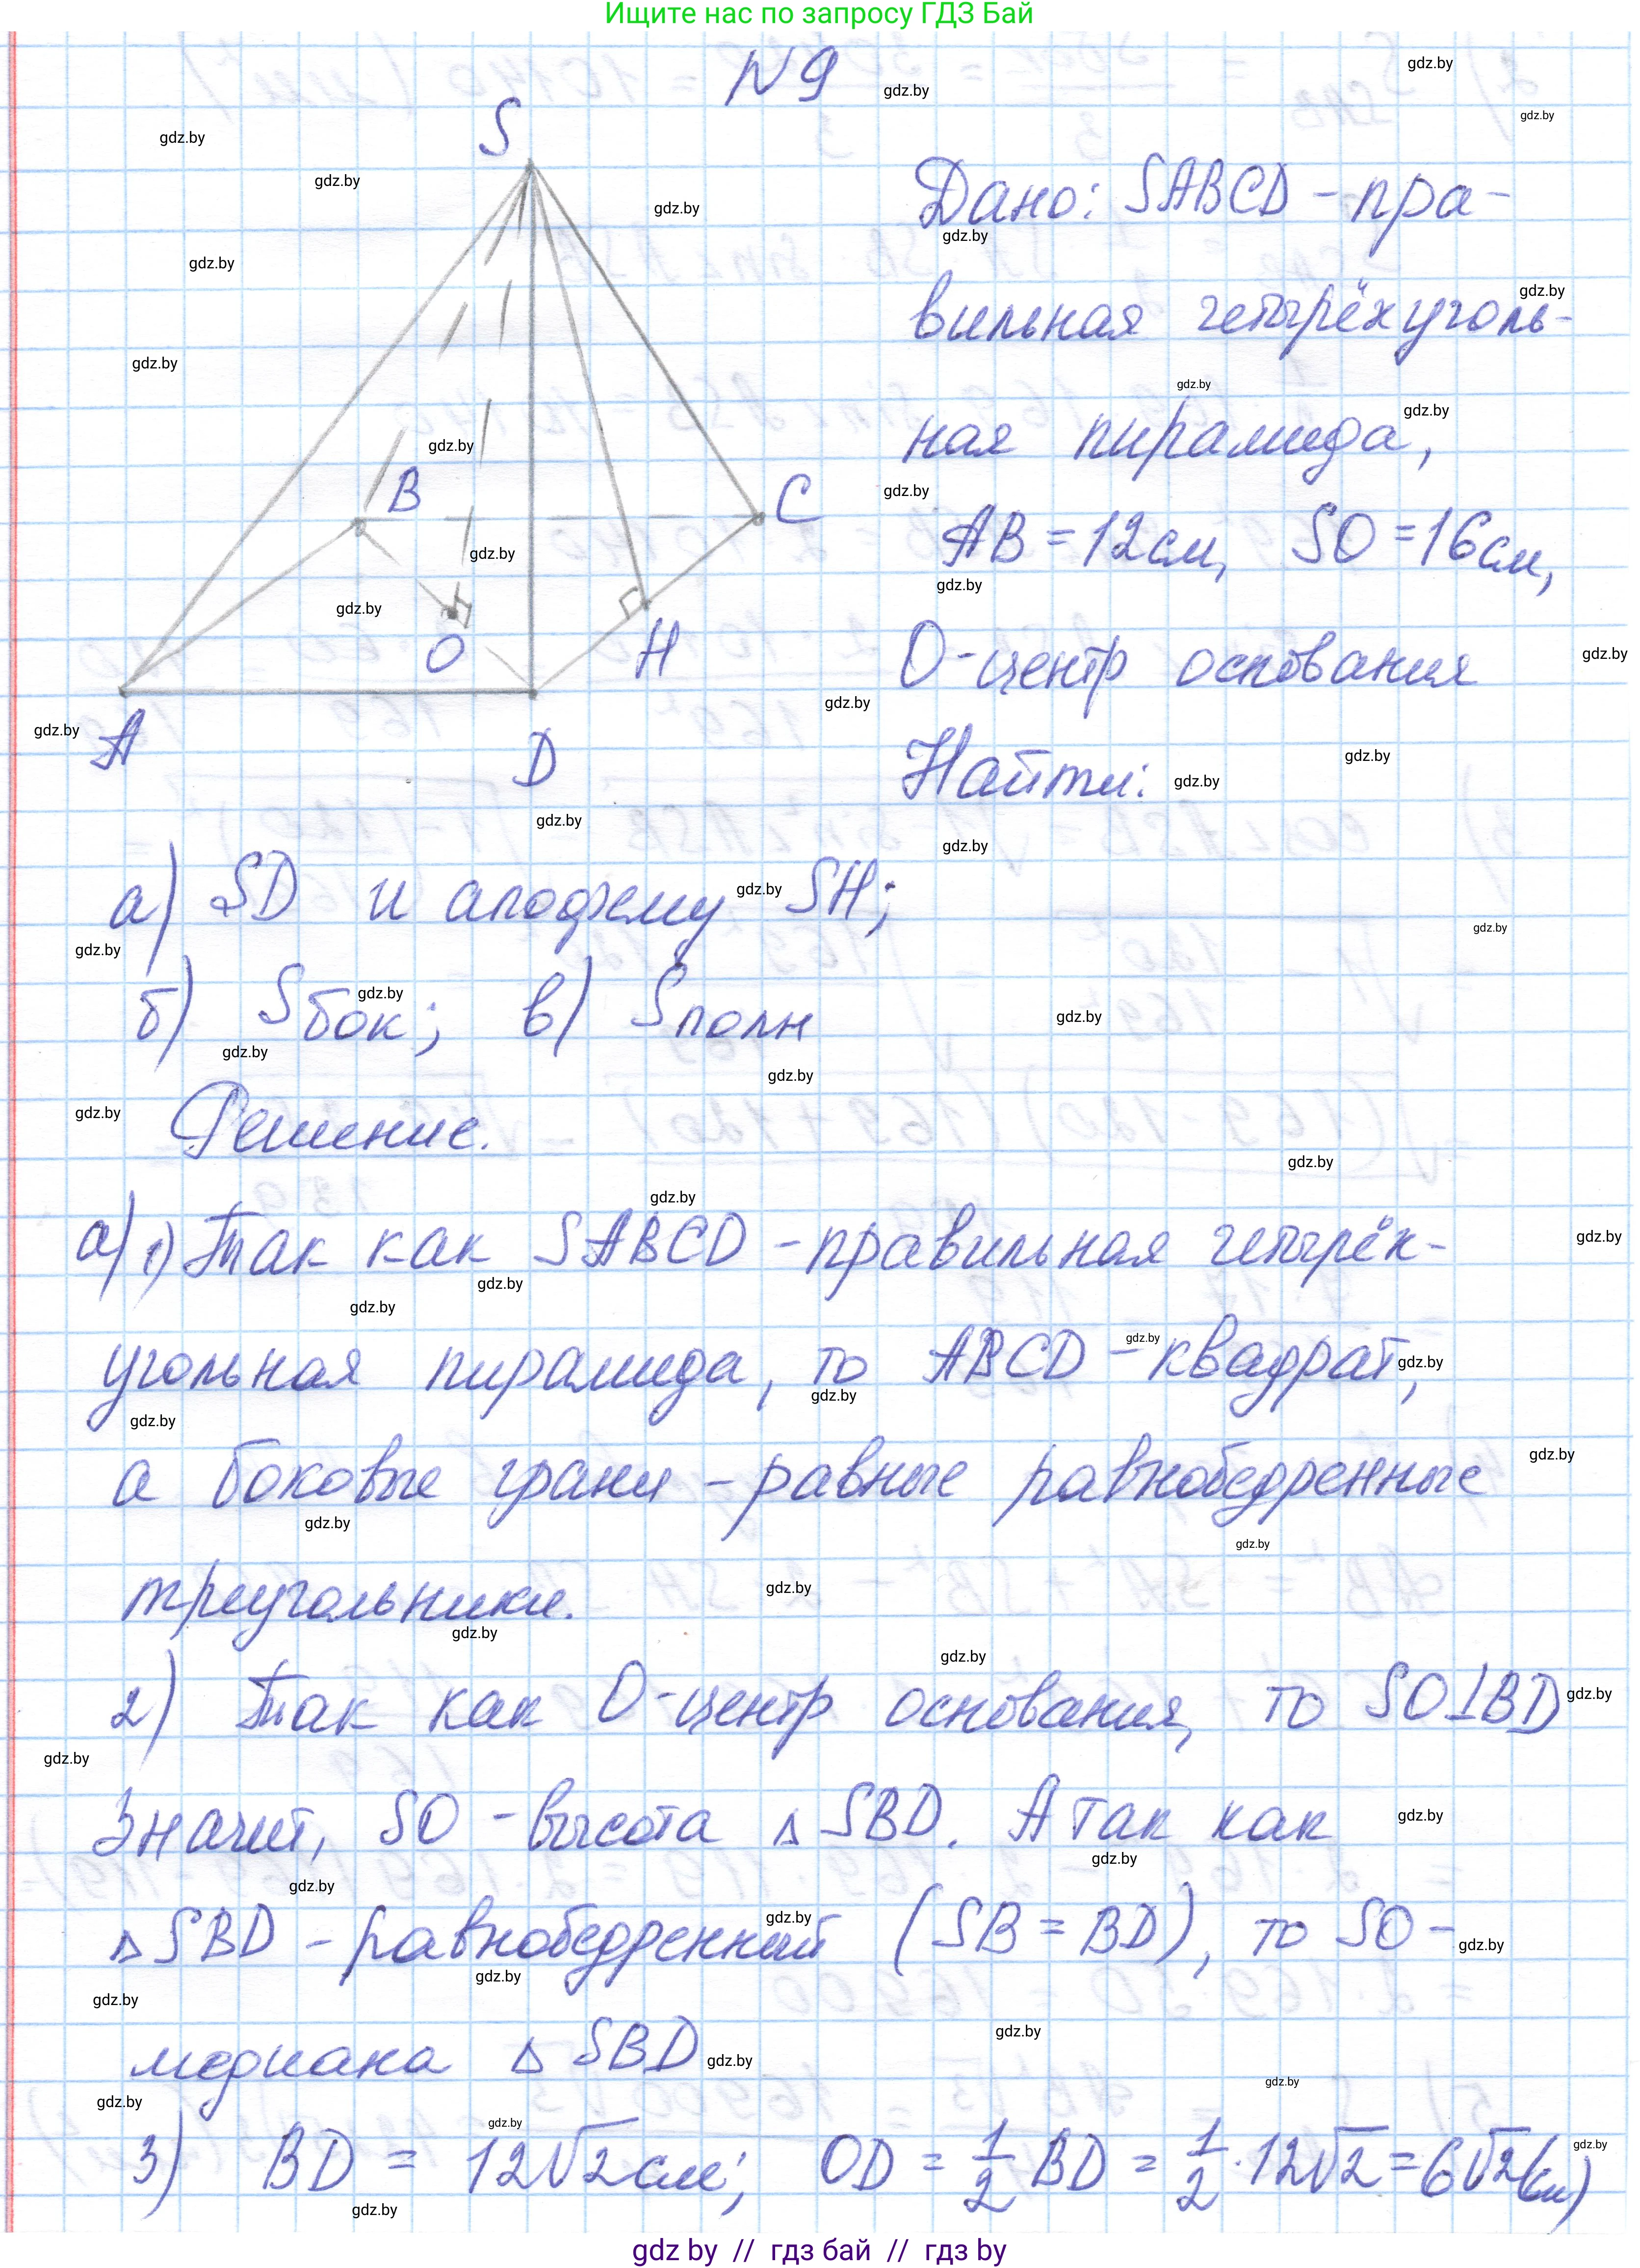 Ищите нас по запросу ГДЗ Бай
N 9
S
B
C
O
H
A
D
Дано: SABCD - пра-
вильная четырёхуголь-
ная пирамида,
AB = 12 см, SO = 16 см,
O - центр основания
Найти:
а) SD и апофему SH;
б) Sбок; в) Sполн
Решение.
а) 1) Так как SABCD - правильная четырёх-
угольная пирамида, то ABCD - квадрат,
а боковые грани - равные равнобедренные
треугольники.
2) Так как O - центр основания, то SO⊥BD
Значит, SO - высота △ SBD. А так как
△ SBD - равнобедренный (SB = BD), то SO -
медиана △ SBD
3) BD = 12√2 см; OD = 1/2 BD = 1/2 · 12√2 = 6√2 (см)
gdz by // гдз бай // гдз by